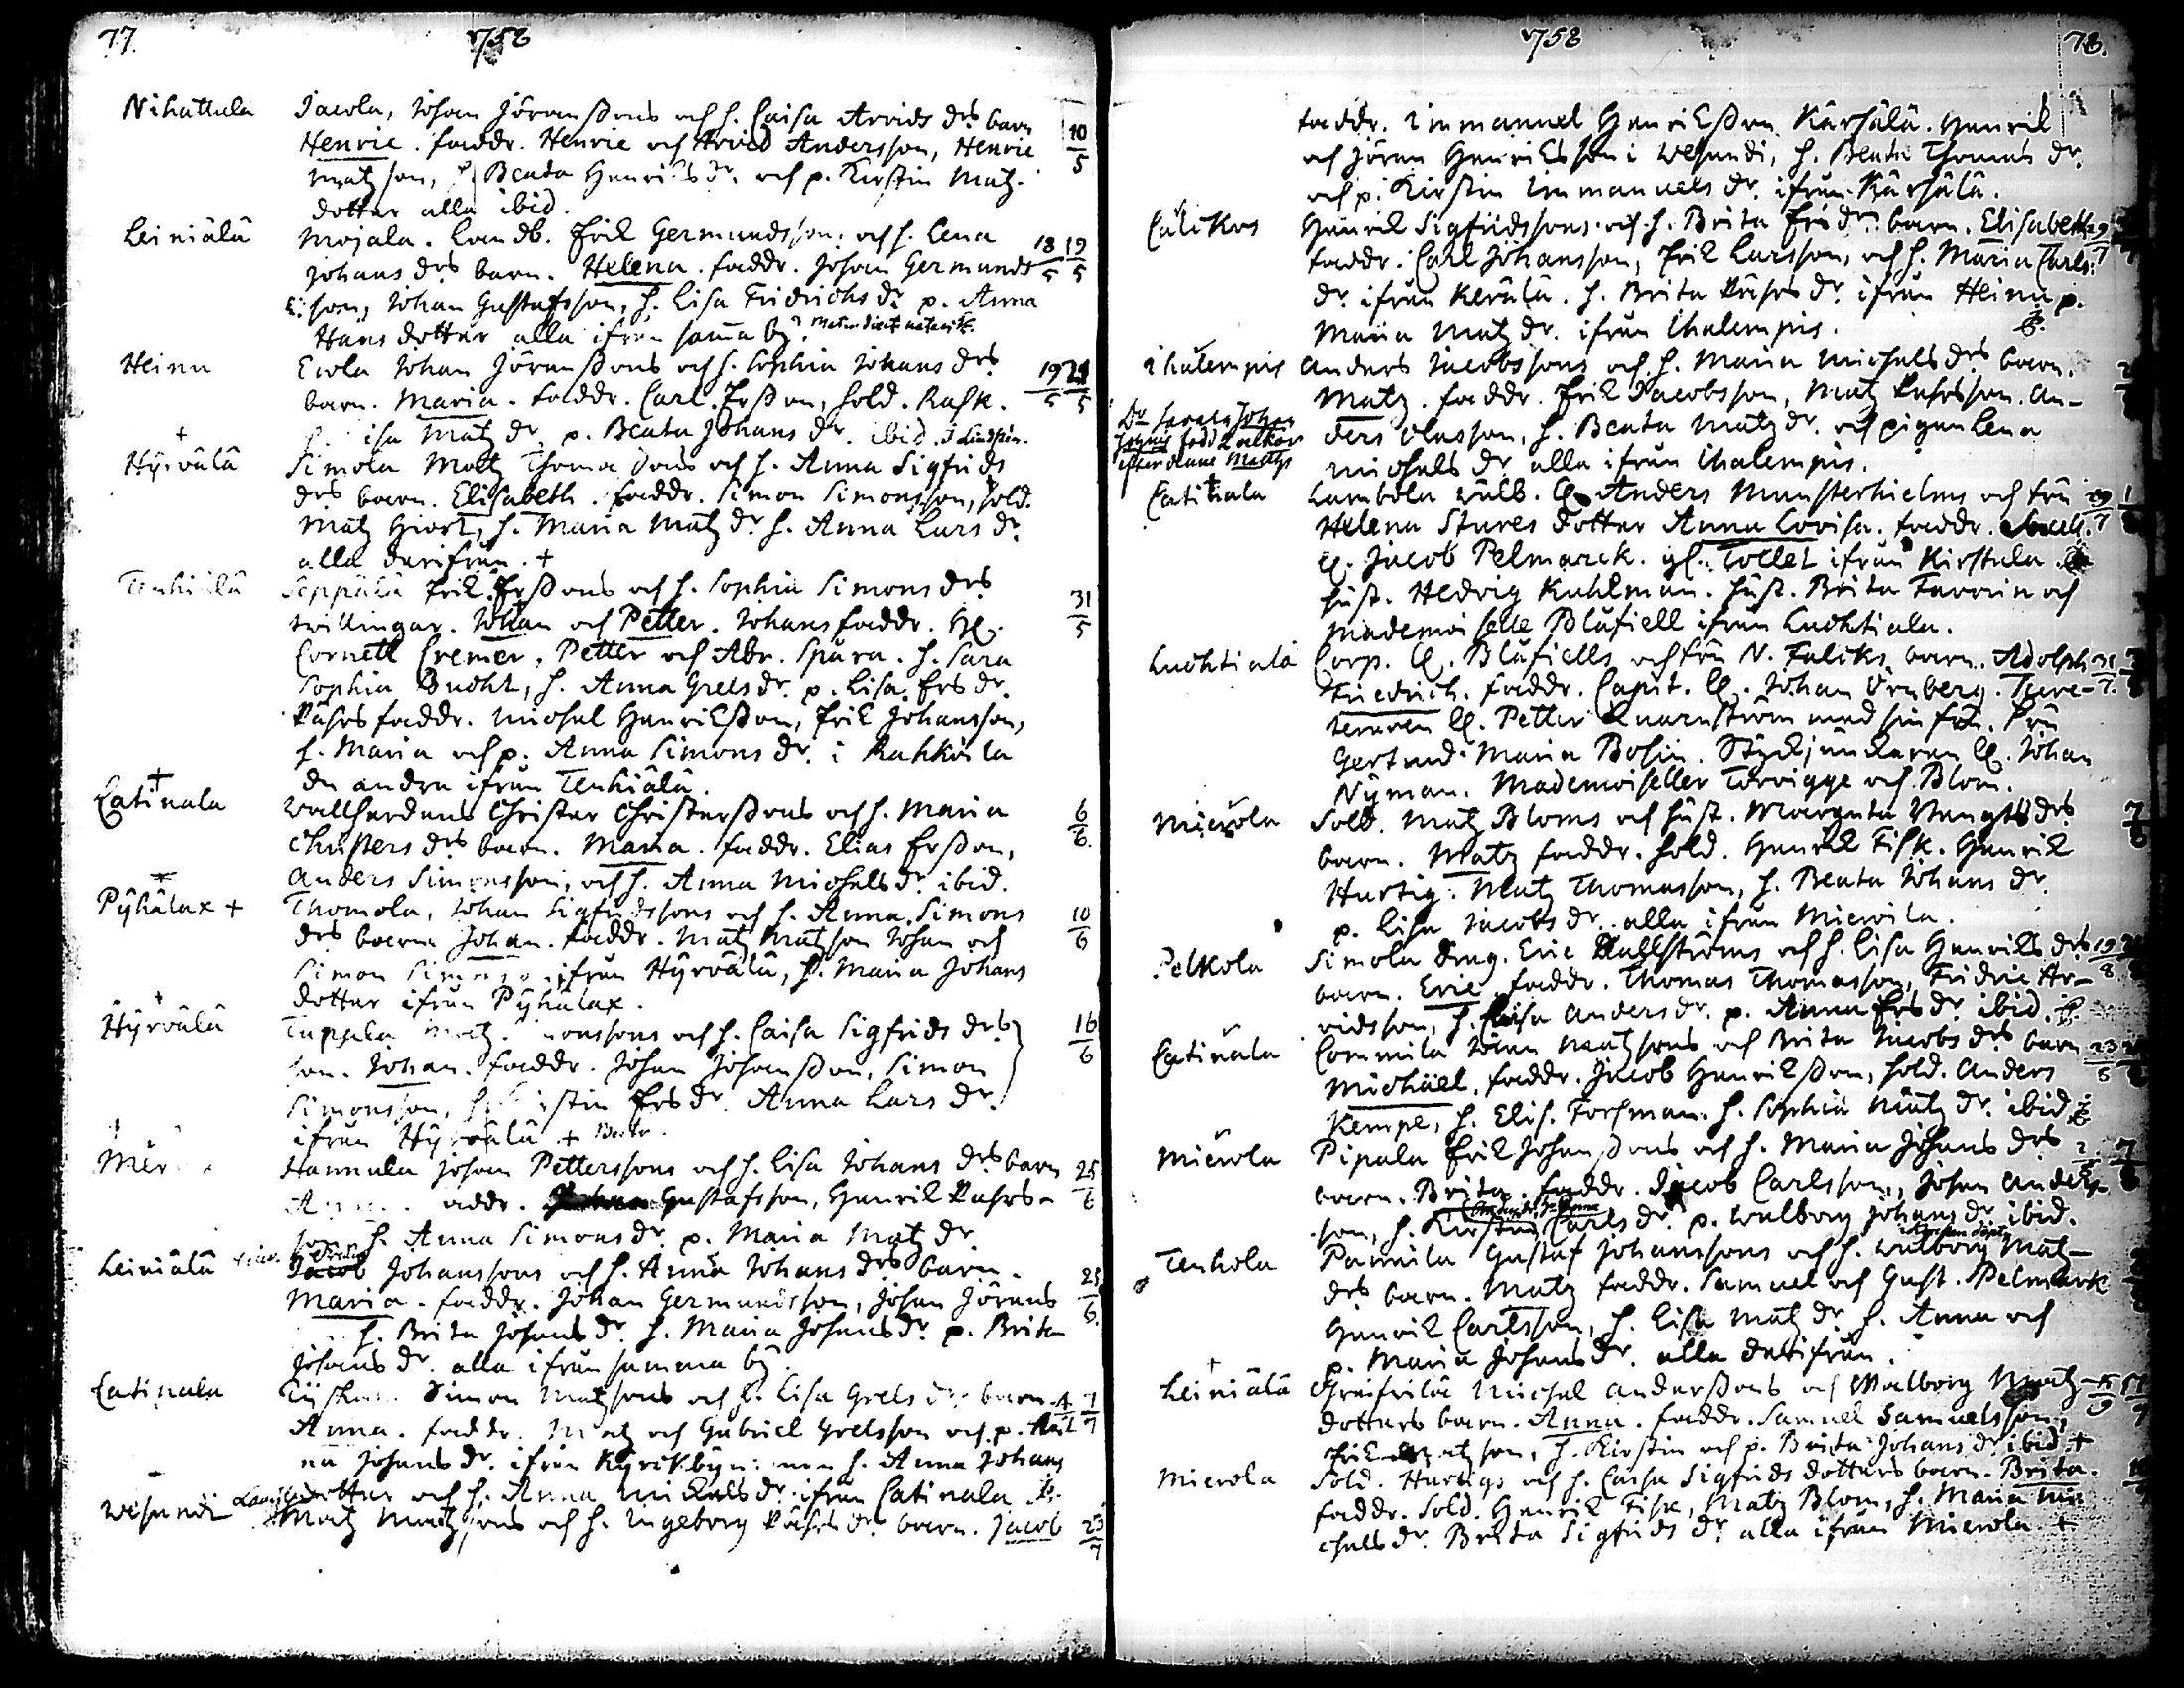 77. 1758
Nihattula Jacola, Johan Jöranssons och h. Caisa Arvids drs barn 10/5
Henric. faddr. Henric och Arvid Andersson, Henric
Matzson, h. Beata Henrics dr. och p. Kirstin Matz-
dotter alla ibid.
Leiniälä Mojala. Landb. Erik Germundsson och h. Lena 18/5 19/5
Johans drs barn. Helena. faddr. Johan Germunds
son, Johan Gustafsson, h. Lisa Fridrichs dr. p. Anna
Hans dotter alla ifrån samma by.
Heinu Ecola Johan Jöranssons och h. Sophia Johans drs 19/5 21/5
barn. Maria. faddr. Carl Ersson, sold. Rask.
h. isa Matz dr. p. Beata Johans dr. ibid.
Hyrvälä Simola Matz Thomæ sons och h. Anna Sigfrids
drs barn. Elisabeth. faddr. Simon Simonsson, sold.
Matz Giort, h. Maria Matz dr. h. Anna Lars dr.
alla derifrån. +
Tenhiälä Seppälä Erik Erssons och h. Sophia Simons drs
tvillingar. Johan och Petter. Johans faddr. H. 31/5
Cornett Cremer, Petter och Abr. Spåra. h. Sara
Sophia Bucht, h. Anna Grels dr. p. Lisa Ers dr.
Påhrs faddr. Michel Henricsson, Erik Johansson,
h. Maria och p. Anna Simons dr. i Rahkoila
de andra ifrån Tenhiälä.
Catinala Wallherdens Christer Christerssons och h. Maria 6/6
Christers drs barn. Maria. faddr. Elias Ersson,
Anders Simonsson, och h. Anna Michels dr. ibid.
Pyhälax + Thomola, Johan Sigfridssons och h. Anna Simons 10/6
drs barn Johan. faddr. Matz Matzson Johan och
Simon Simonson ifrån Hyrvälä, h. Maria Johans
dotter ifrån Pyhälax.
Hyrvälä Tuppala Matz onssons och h. Caisa Sigfrids drs 16/6
son. Johan. faddr. Johan Johansson, Simon
Simonsson, h. irstin Ers dr. Anna Lars dr.
ifrån Hyrvälä +
Mer Hannula Johan Petterssons och h. Lisa Johans drs barn 25/6
An addr. Gustafsson, Henrik Påhrs-
son h. Anna Simons dr. p. Maria Matz dr.
Leiniälä Jacob Johanssons och h. Anna Johans drs barn. 25/6
Maria. faddr. Johan Germundsson, Johan Jörans
h. Brita Johans dr. h. Maria Johans dr. p. Brita
Johans dr. alla ifrån samma by.
Catinala Simon Matzsons och h. Lisa Grels drs barn. 1/7
Anna. faddr. Matz och Gabriel Grelsson och p. An
na Johans dr. ifrån Kyrckbyn h. Anna Johans
dotter och h. Anna Michels dr. ifrån Catinala
Wesundi Matz Matzsons och h. Ingeborg Påhrs dr. barn. Jacob 23/7
1758 78.
faddr. Immanuel Henricsson Kärsälä. Henrik
och Jöran Henricsson i Wesundi, h. Beata Thomas dr.
och p. Kirstin Immanuels dr. ifrån Kärsälä.
Henrik Sigfridssons och h. Brita Ers drs barn. Elisabeth 29/7
faddr. Carl Johansson, Erik Larsson, och h. Maria Carls
dr. ifrån Kerälä. h. Brita Påhrs dr. ifrån Heinu p.
Maria Matz dr. ifrån Ihalempis.
Ihalempis Anders Jacobssons och h. Maria Michels drs barn.
Matz. faddr. Erik Jacobsson, Matz Påhrsson. An-
ders Olasson, h. Beata Matz dr. och pigan Lena
Michels dr. alla ifrån Ihalempis.
Catinala Lambola wälb. H. Anders Munsterhielms och fru 29/7
Helena Stures dotter Anna Lovisa. faddr.
H. Jacob Pelmarck. H. Tollet ifrån Kirstula.
hust. Hedvig Kuhlman. hust. Brita Favorin och
Mademoiselle Blåfiell ifrån Luchtiala.
Luchtiala Corp. H. Blåfiells och fru N. Falcks barn. Adolph 31/7
Friedrich. faddr. Capit. H. Johan Örnberg.
H. Petter Quarnström med sin fru. fru
Gertrud Maria Bosin. Styckjunkaren H. Johan
Nyman. Mademoiseller Torvigge och Blom.
Mierola Sold. Matz Bloms och hust. Margreta Bengts drs 7/8
barn. Matz faddr. sold. Henrik Fisk. Henrik
Hurtig. Matz Thomasson, h. Beata Johans dr.
p. Lisa Jacobs dr. alla ifrån Mierola.
Pelkola Simola Drag. Eric Hallströms och h. Lisa Henriks drs 19/8
barn. Eric faddr. Thomas Thomasson, Fridric Ar-
vidsson, h. Caisa Anders dr. p. Anna Ers dr. ibid.
Catinala Commila Johan Matzsons och Brita Jacobs drs barn 23/8
Michäel. faddr. Jacob Henriksson, sold. Anders
Kempe, h. Elis. Forsman. h. Sophia Matz dr. ibid
Mierola Pipala Erik Johanssons och h. Maria Johans drs
barn. Brita. faddr. Jacob Carlsson, Johan Anders-
son, h. Kirstin Carls dr. p. Walborg Johans dr. ibid.
Tenhola Parmila Gustaf Johanssons och h. Walborg Mat-
drs barn. Matz faddr. Samuel och Gust. Pelmark
Henrik Carlsson, h. Lisa Matz dr. h. Anna och
p. Maria Johans dr. alla derifrån.
Leiniälä Michel Anderssons och Walborg Matz-
dotters barn. Anna. faddr. Samuel Samuelsson,
Erik Matzson, h. Kirstin och p. Brita Johans dr. ibid. +
Mierola Sold. Hurtigs och h. Caisa Sigfrids dotters barn. Brita.
faddr. Sold. Henrik Fisk, Matz Blom, h. Maria Mi-
chels dr. Brita Sigfrids dr. alla ifrån Mierola +